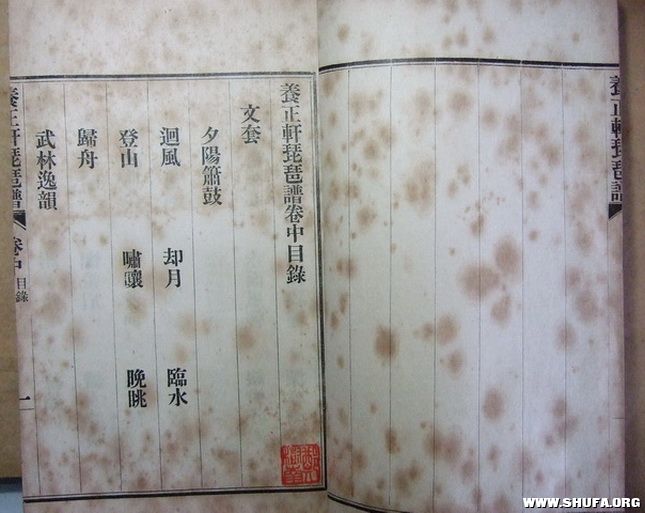 養正軒琵琶譜
養正軒琵琶譜卷中目錄
文套
夕陽簫鼓
迴風 却月 臨水
登山 嘯嚷 晚眺
歸舟
武林逸韻
養正軒琵琶譜 卷中 目錄 一
WWW.SHUFA.ORG